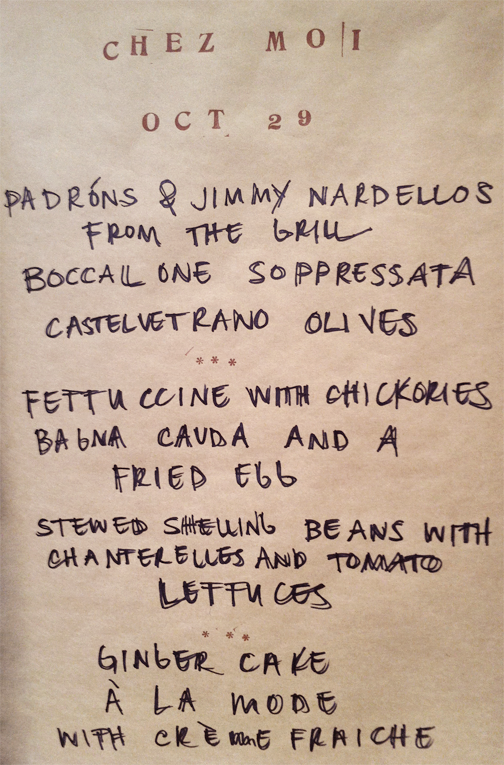 CHEZ MOI
OCT 29
PADRÓNS & JIMMY NARDELLOS
FROM THE GRILL
BOCCALLONE SOPPRESSATA
CASTELVETRANO OLIVES
***
FETTUCCINE WITH CHICKORIES
BAGNA CAUDA AND A
FRIED EGG
STEWED SHELLING BEANS WITH
CHANTERELLES AND TOMATO
LETTUCES
***
GINGER CAKE
À LA MODE
WITH CRÈME FRAICHE